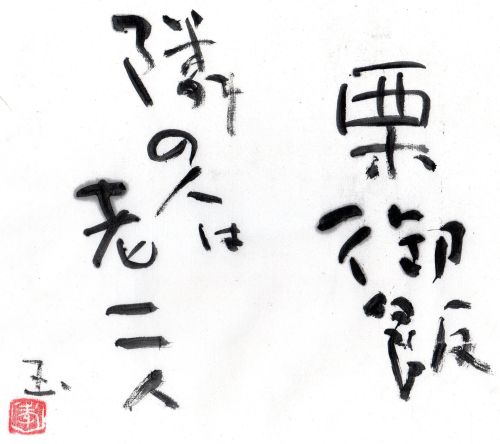 栗御飯
隣の人は
老二人
玉